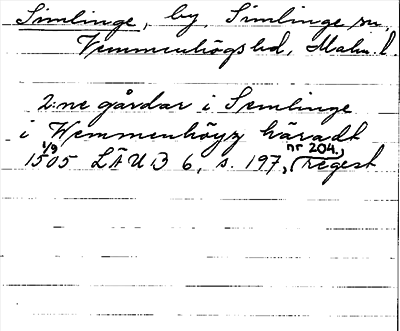 Simlinge, by, Simlinge sn,
Vemmenhögs hd, Malm. l.
2:ne gårdar i Semlinge
i Wemmenhöyg häradt
1/9 1505 LÄUB 6, s. 197, nr 204., regest